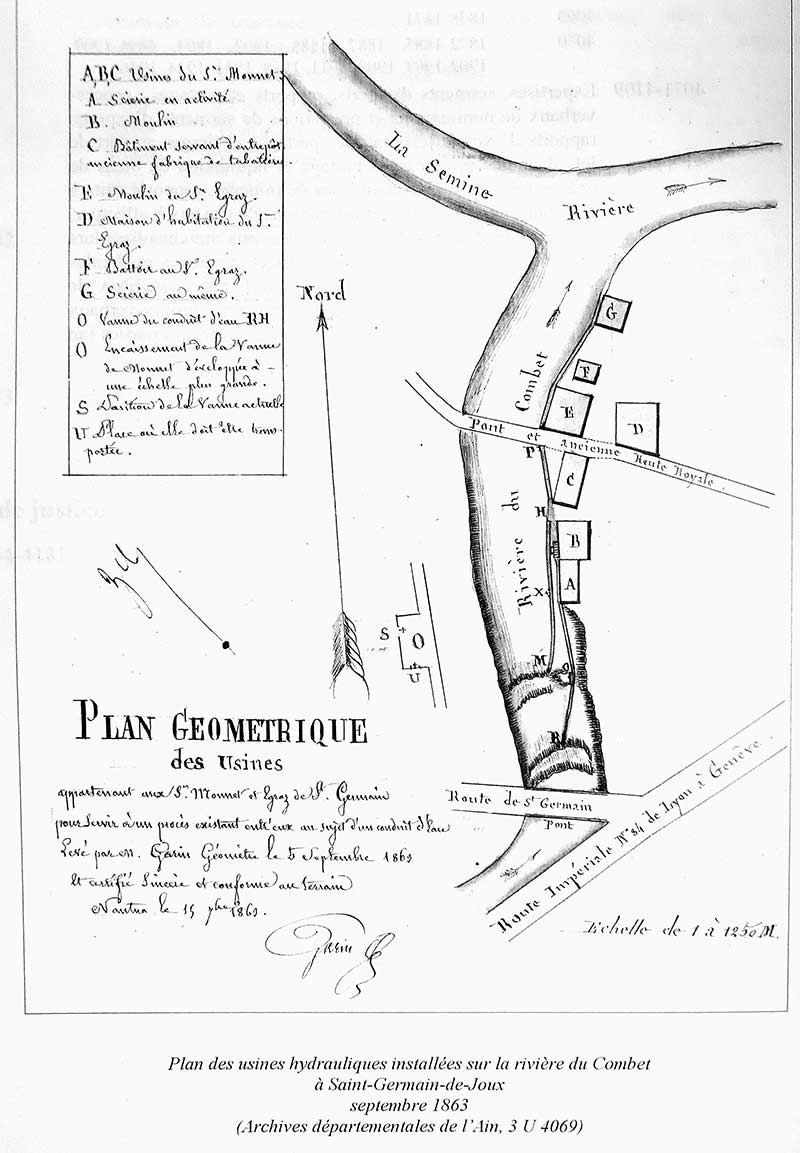 A, B, C Usine du Sr. Monnet.
A Scierie en activité
B. Moulin
C Bâtiment servant d'entrepôt
ancienne fabrique de tabatière.
E Moulin du Sr. Egraz.
D Maison d'habitation du Sr.
Egraz.
F Battoir au Sr. Egraz.
G Scierie au même.
O Vanne du conduit d'eau RH
O Encaissement de la Vanne
de Monnet développée à
une échelle plus grande.
S Position de la Vanne actuelle
U Place où elle doit être trans-
portée.
La Semine
Rivière
Nord
G
F
E
D
Combet
Pont et ancienne Route Royale.
P
C
H
Rivière du
B
X
A
M
R
S
O
U
PLAN GEOMETRIQUE
des Usines
appartenant aux Srs. Monnet et Egraz de St. Germain
pour servir à un procès existant entr'eux au sujet d'un conduit d'eau
Levé par M. Garin Géomètre le 5 Septembre 1863
et certifié sincère et conforme au terrain
Nantua le 15 7bre 1863.
Garin
Route de St Germain
Pont
Route Impériale No. 84 de Lyon à Genève.
Echelle de 1 à 1250 M.
Plan des usines hydrauliques installées sur la rivière du Combet
à Saint-Germain-de-Joux
septembre 1863
(Archives départementales de l'Ain, 3 U 4069)